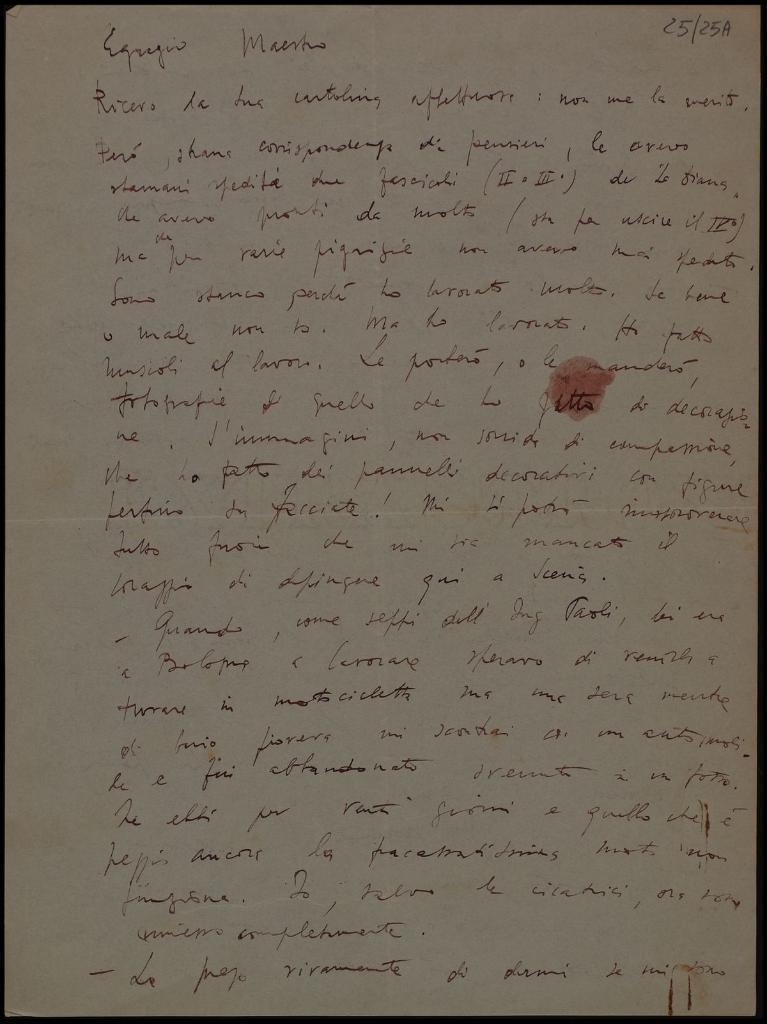 25/25A
Egregio Maestro
Ricevo la sua cartolina affettuosa: non me la merito.
Però, strana corrispondenza di pensieri, le avevo
stamani spedita due fascicoli (II e III°) de La Diana,
che avevo pronti da molto (sta per uscire il IV°)
ma che per varie pigrizie non avevo mai spedito.
Sono stanco perché ho lavorato molto. Se bene
o male non so. Ma ho lavorato. Ho fatto
muscoli al lavoro. Le porterò, o le manderò,
fotografie di quello che ho fatto di decorazio-
ne. S'immagini, non sorrida di compassione,
che ho fatto dei pannelli decorativi con figure
perfino su facciate! Mi si potrà rimproverare
tutto fuori che mi sia mancato il
coraggio di dipingere qui a Siena.
– Quando, come seppi dall'Ing Paoli, lei era
a Bologna a lavorare speravo di venirla a
trovare in motocicletta ma una sera mentre
di buio pioveva mi scontrai con un automobi-
le e fui abbandonato svenuto in un fosso.
Ne ebbi per venti giorni e quello che è
peggio ancora la fracassatissima moto non
funziona. Io, salvo le cicatrici, ora sono
rimesso completamente.
– La prego vivamente di dirmi se mi sono